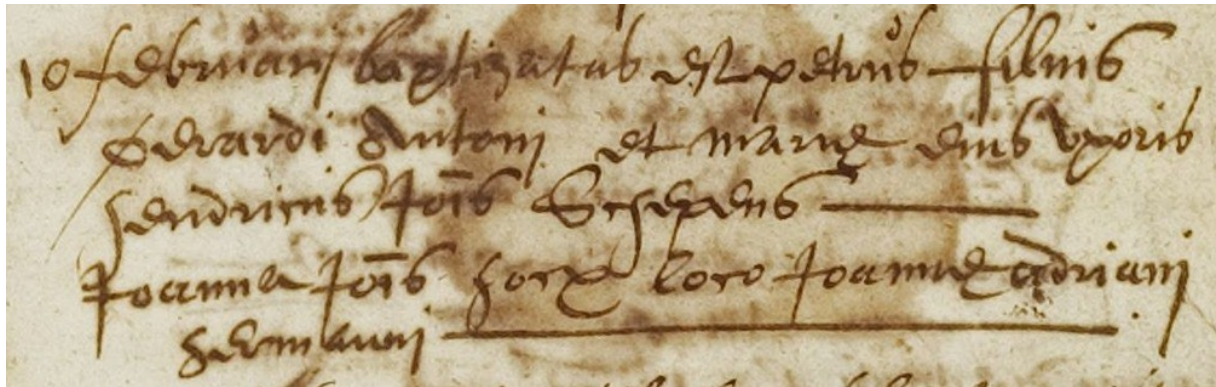 10 februarij baptizatus est petrus filius
Gerardi Antonij et marię eius uxoris
hendricus Jōis Schepens
Joanna Jōis hocx loco Joannę adriani
hermanni